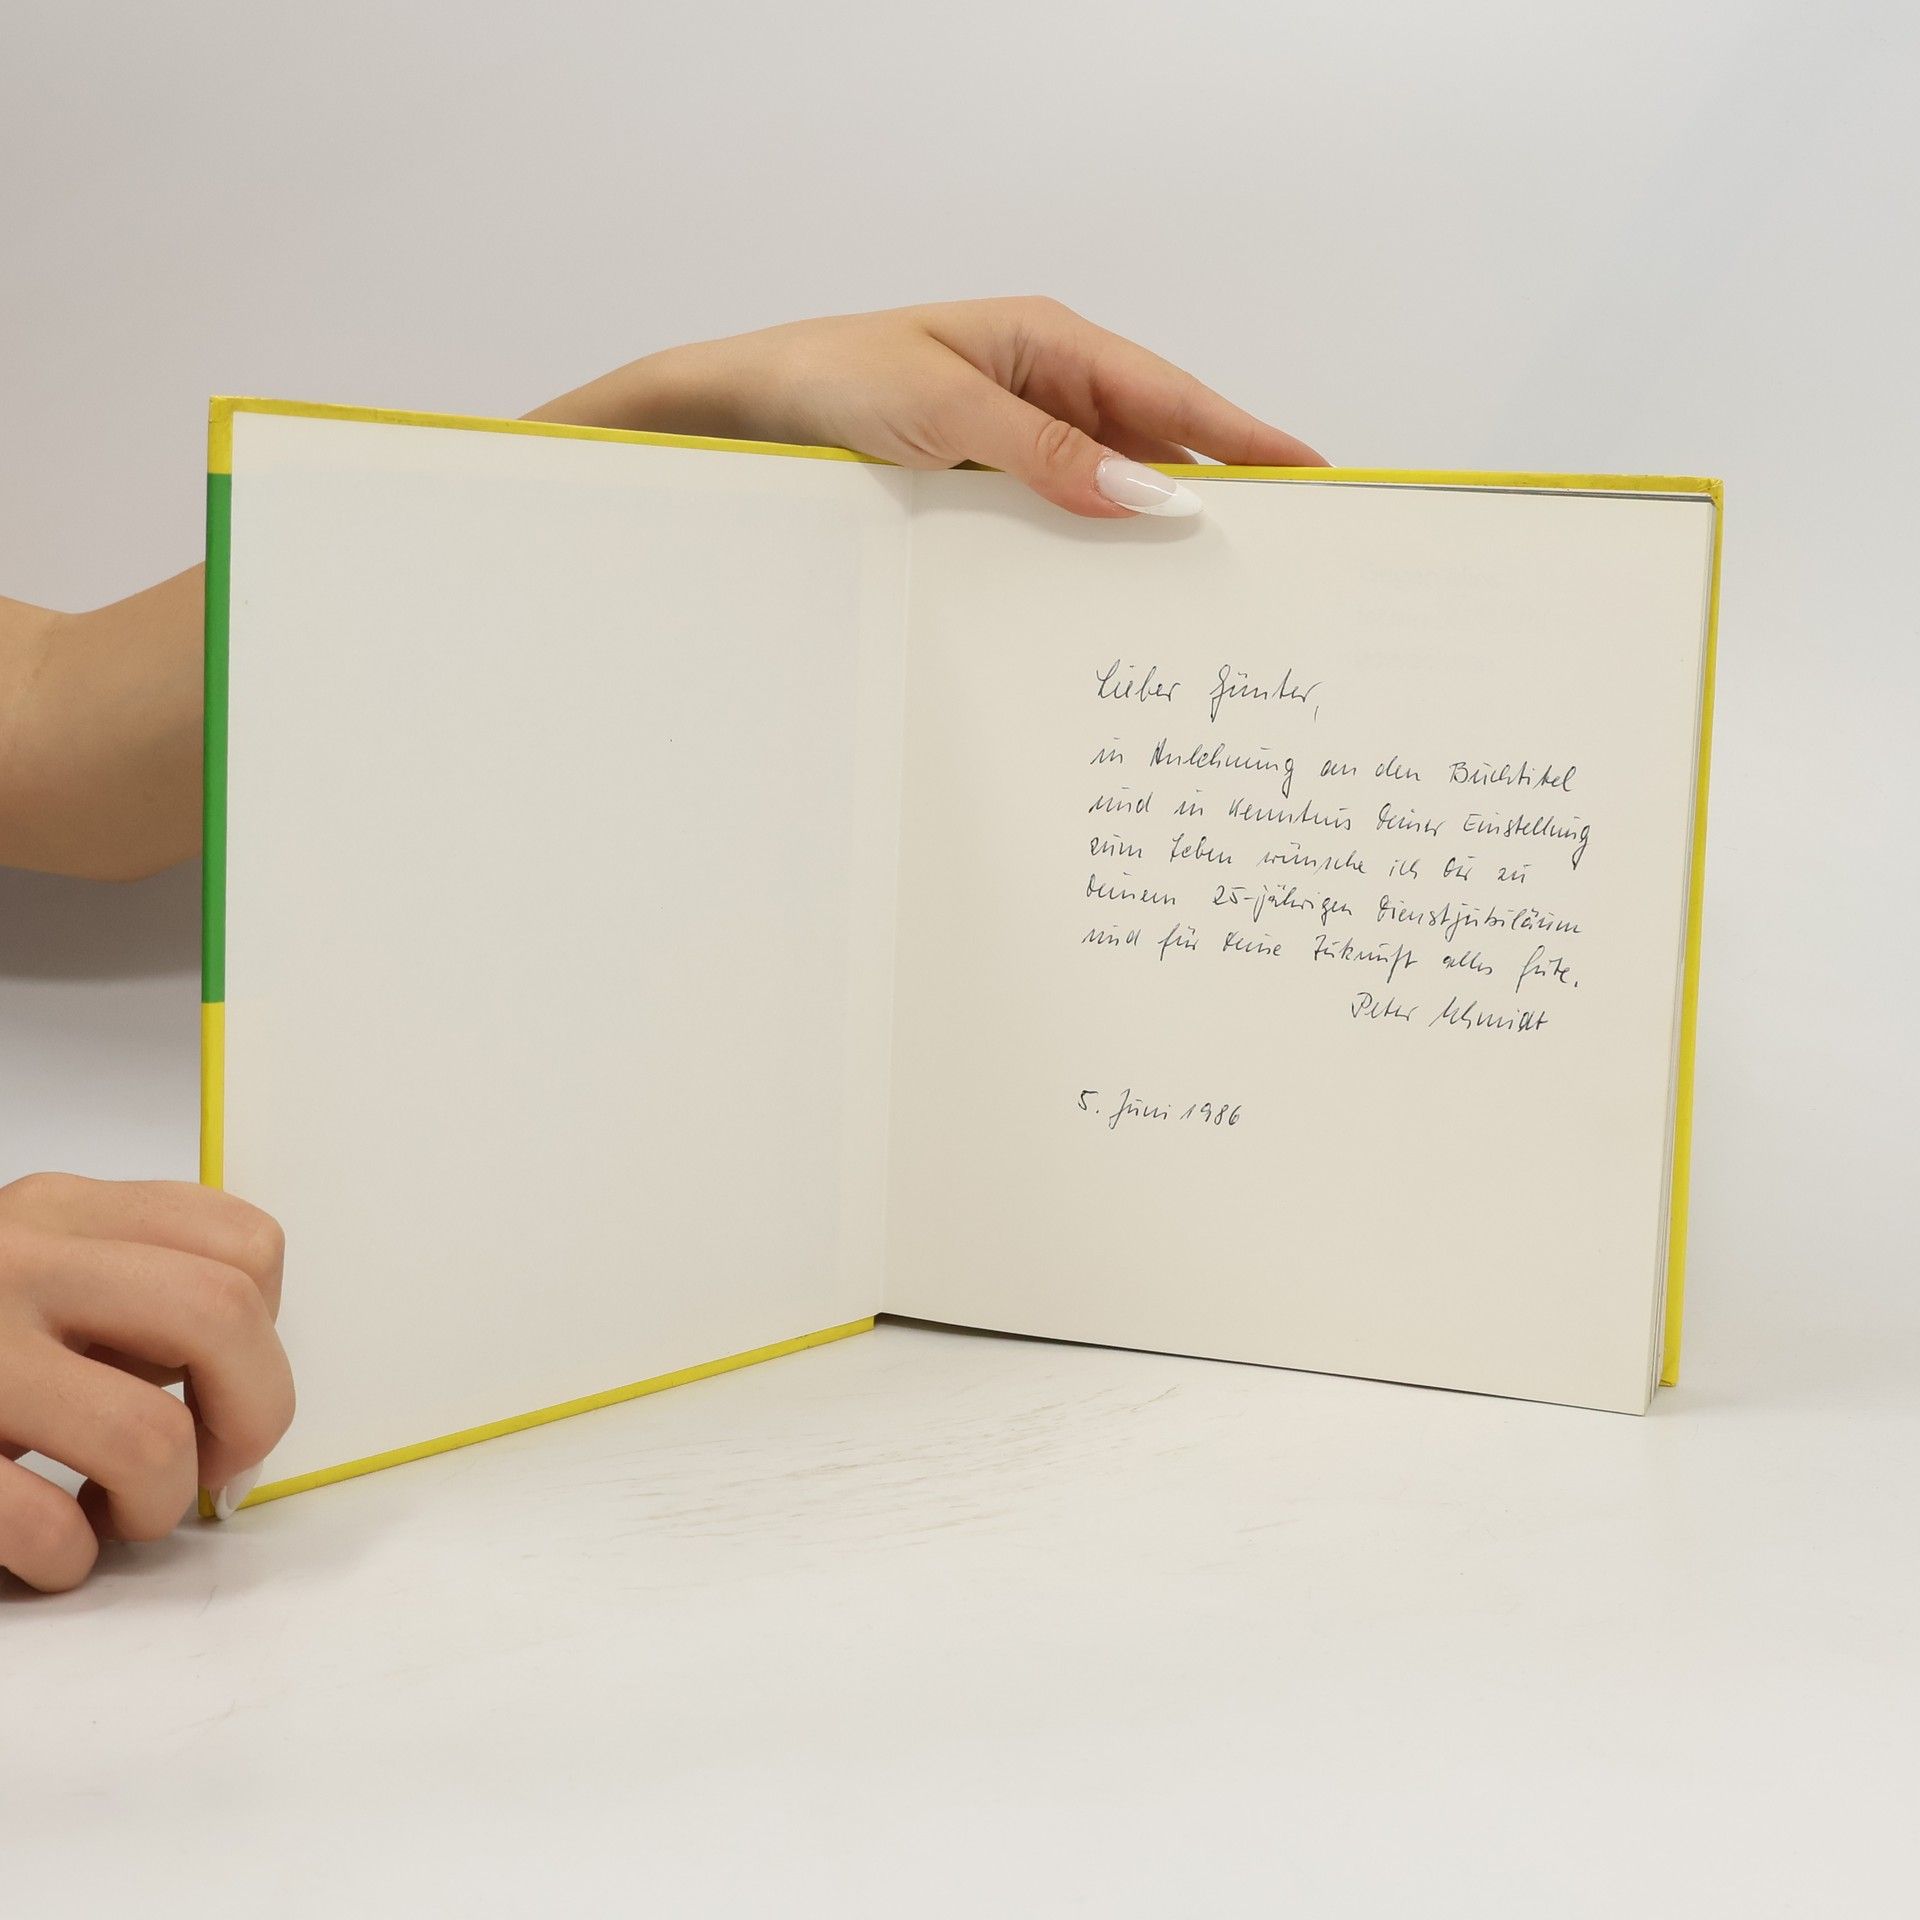 Lieber Günter,
in Anlehnung an den Buchtitel
und in Kenntnis Deiner Einstellung
zum Leben wünsche ich Dir zu
Deinem 25-jährigen Dienstjubiläum
und für Deine Zukunft alles Gute.
Peter Schmidt
5. Juni 1986